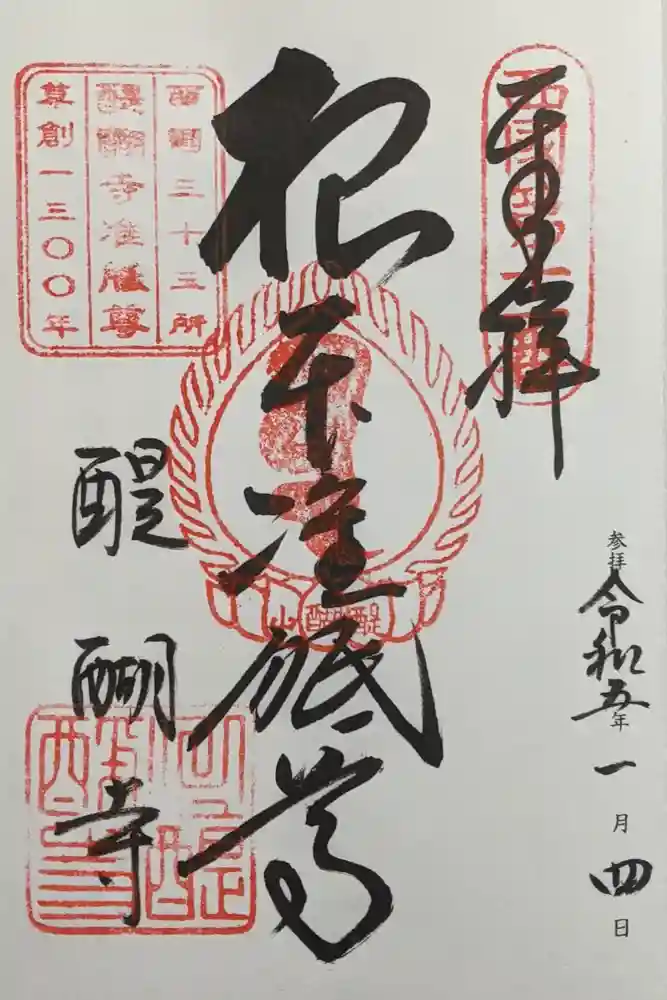 奉拝
参拝
令和五年一月四日
根本准胝尊
醍醐山
西國三十三所
醍醐寺准胝尊
草創一三〇〇年
醍醐寺